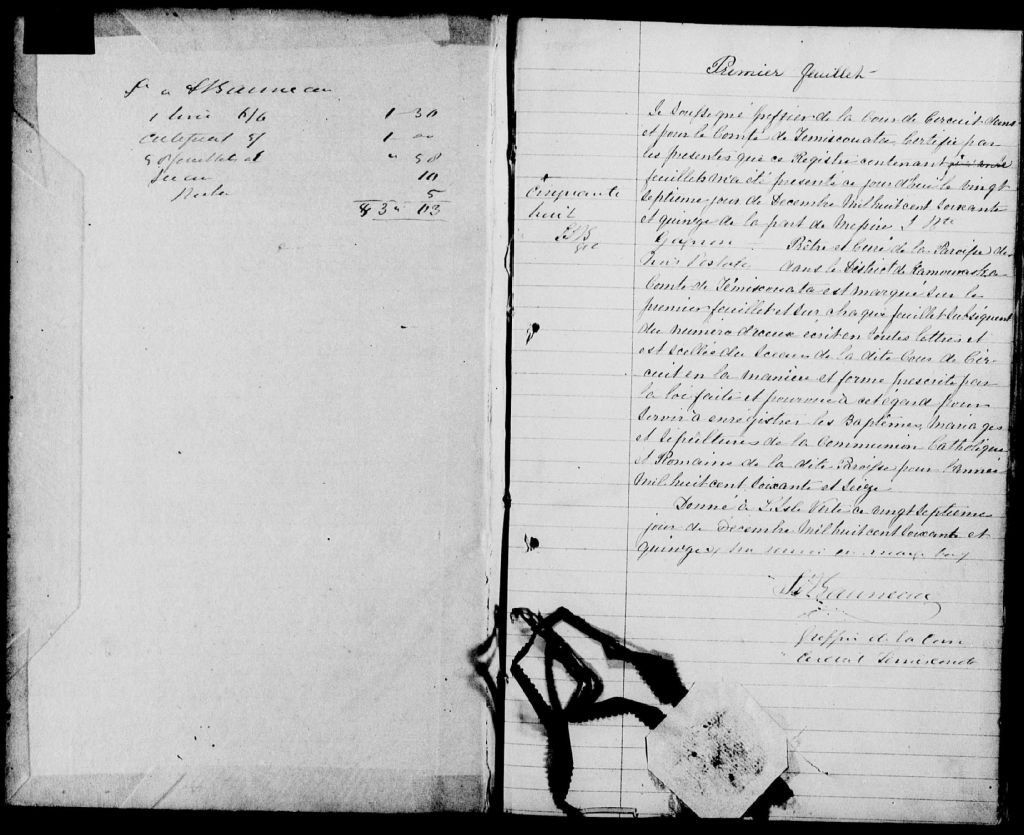 1 livre 6/6 1 30
Certificat 5/ 1 00
58 feuillets " 58
Sceau 10
5
$ 3 " 03
Premier feuillet
Je Soussigné Greffier de la Cour de Circuit dans
et pour le Comté de Témiscouata Certifie par
les présentes que ce Registre contenant
feuillets m'a été présenté ce jourd'hui le vingt
Cinquante
huit
Septième jour de Décembre Mil huit cent soixante
et quinze de la part de Messire J Bte
Gagnon Prêtre et Curé de la Paroisse de
dans le District de Kamouraska
Comté de Témiscouata est marqué sur le
premier feuillet et sur chaque feuillet subséquent
du numéro d'iceux écrit en toutes lettres et
est scellée du Sceau de la dite Cour de Cir-
cuit en la manière et forme prescrite par
la loi faite et pourvue à cet égard pour
servir à enregistrer les Baptêmes Mariages
et Sépultures de la Communion Catholique
et Romaine de la dite Paroisse pour l'année
Mil huit cent soixante et Seize
Donné à L'Isle Verte ce vingt Septième
jour de Décembre Mil huit cent soixante et
quinze
Greffier de la Cour
Circuit Temiscouata